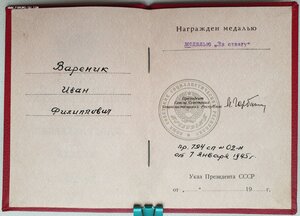 Вареник
Иван
Филиппович
Награжден медалью
медалью "За отвагу"
Президент
Союза Советских
Социалистических Республик
пр. 794 сп № 02-н
от 7 января 1945 г.
Указ Президента СССР
от „ " 19 г.